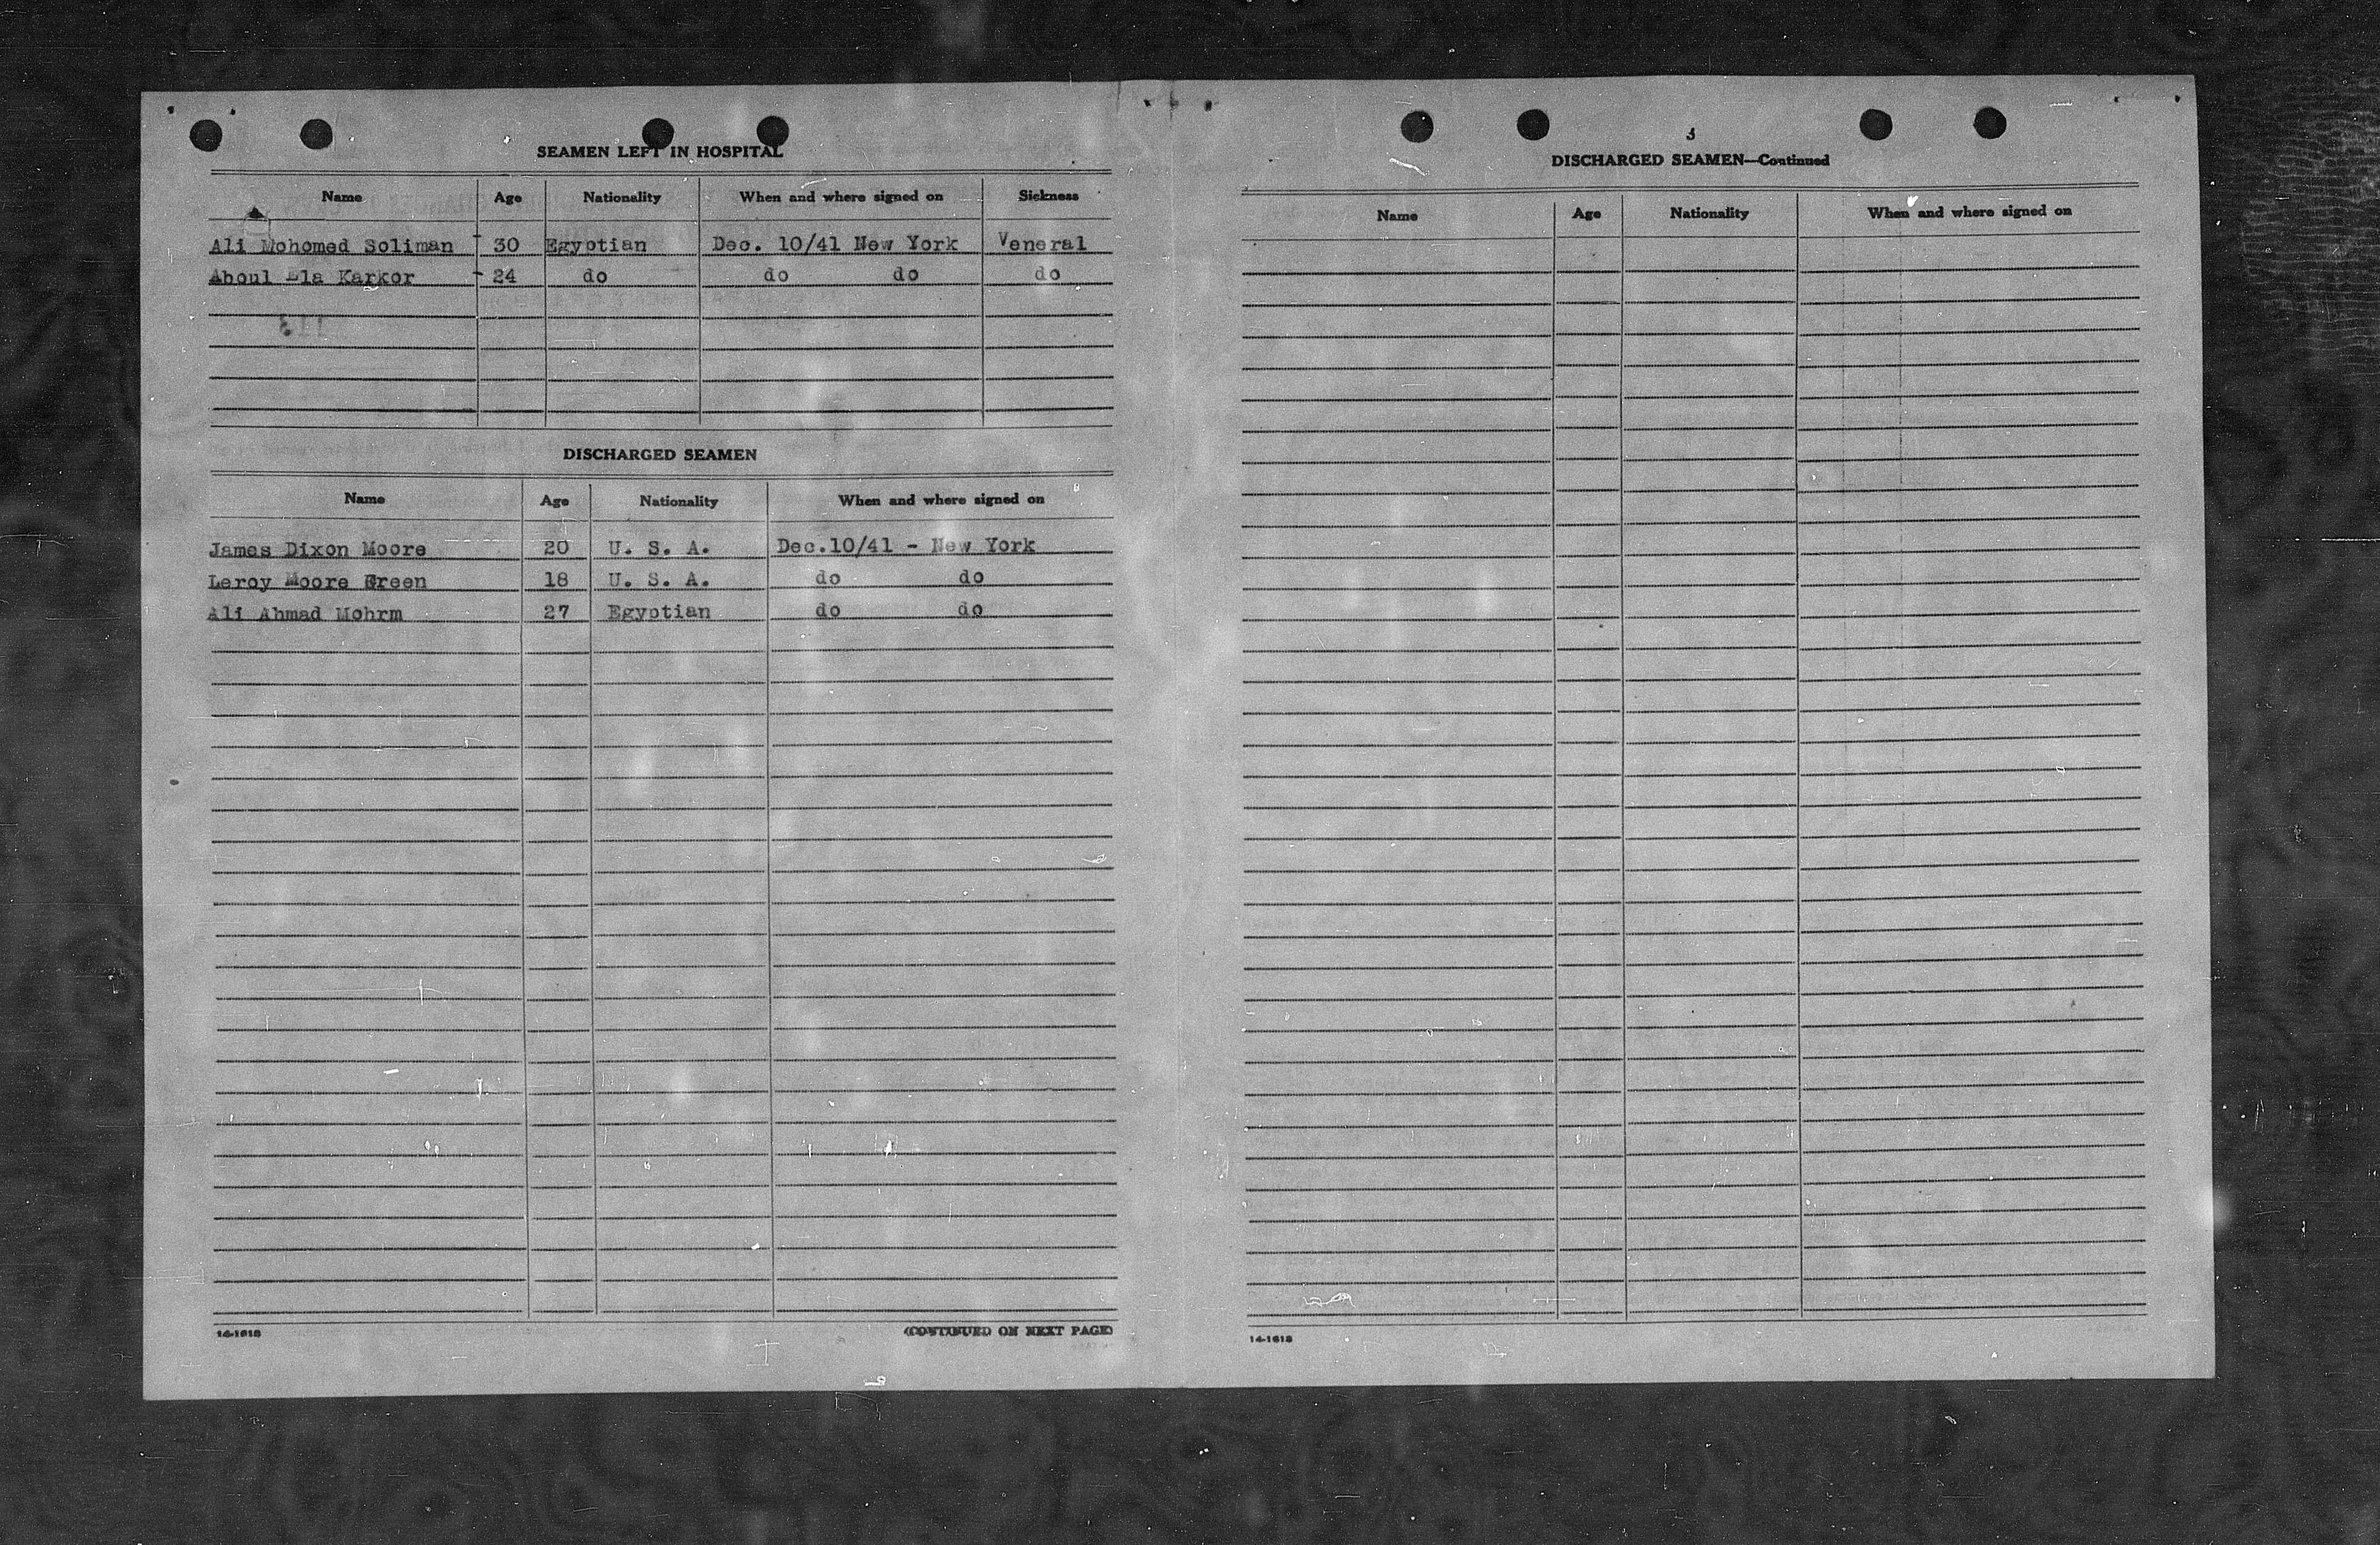 SEAMEN LEFT IN HOSPITAL
Name Age Nationality When and where signed on Sickness
Ali Mohomed Soliman 30 Egyptian Dec. 10/41 New York Veneral
Aboul Ela Karkor 24 do do do do
DISCHARGED SEAMEN
Name Age Nationality When and where signed on
James Dixon Moore 20 U. S. A. Dec.10/41 - New York
Leroy Moore Green 18 U. S. A. do do
Ali Ahmad Mohrm 27 Egyptian do do
14-1618 (CONTINUED ON NEXT PAGE)
3
DISCHARGED SEAMEN—Continued
Name Age Nationality When and where signed on
14-1618